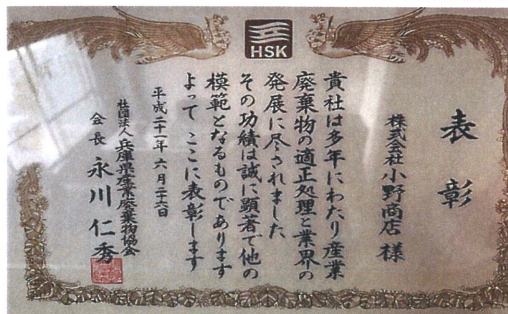 HSK
表彰
株式会社小野商店 様
貴社は多年にわたり産業
廃棄物の適正処理と業界の
発展に尽されました
その功績は誠に顕著で他の
模範となるものであります
よって ここに表彰します
平成二十一年 六月二十六日
社団法人 兵庫県産業廃棄物協会
会長 永川仁秀